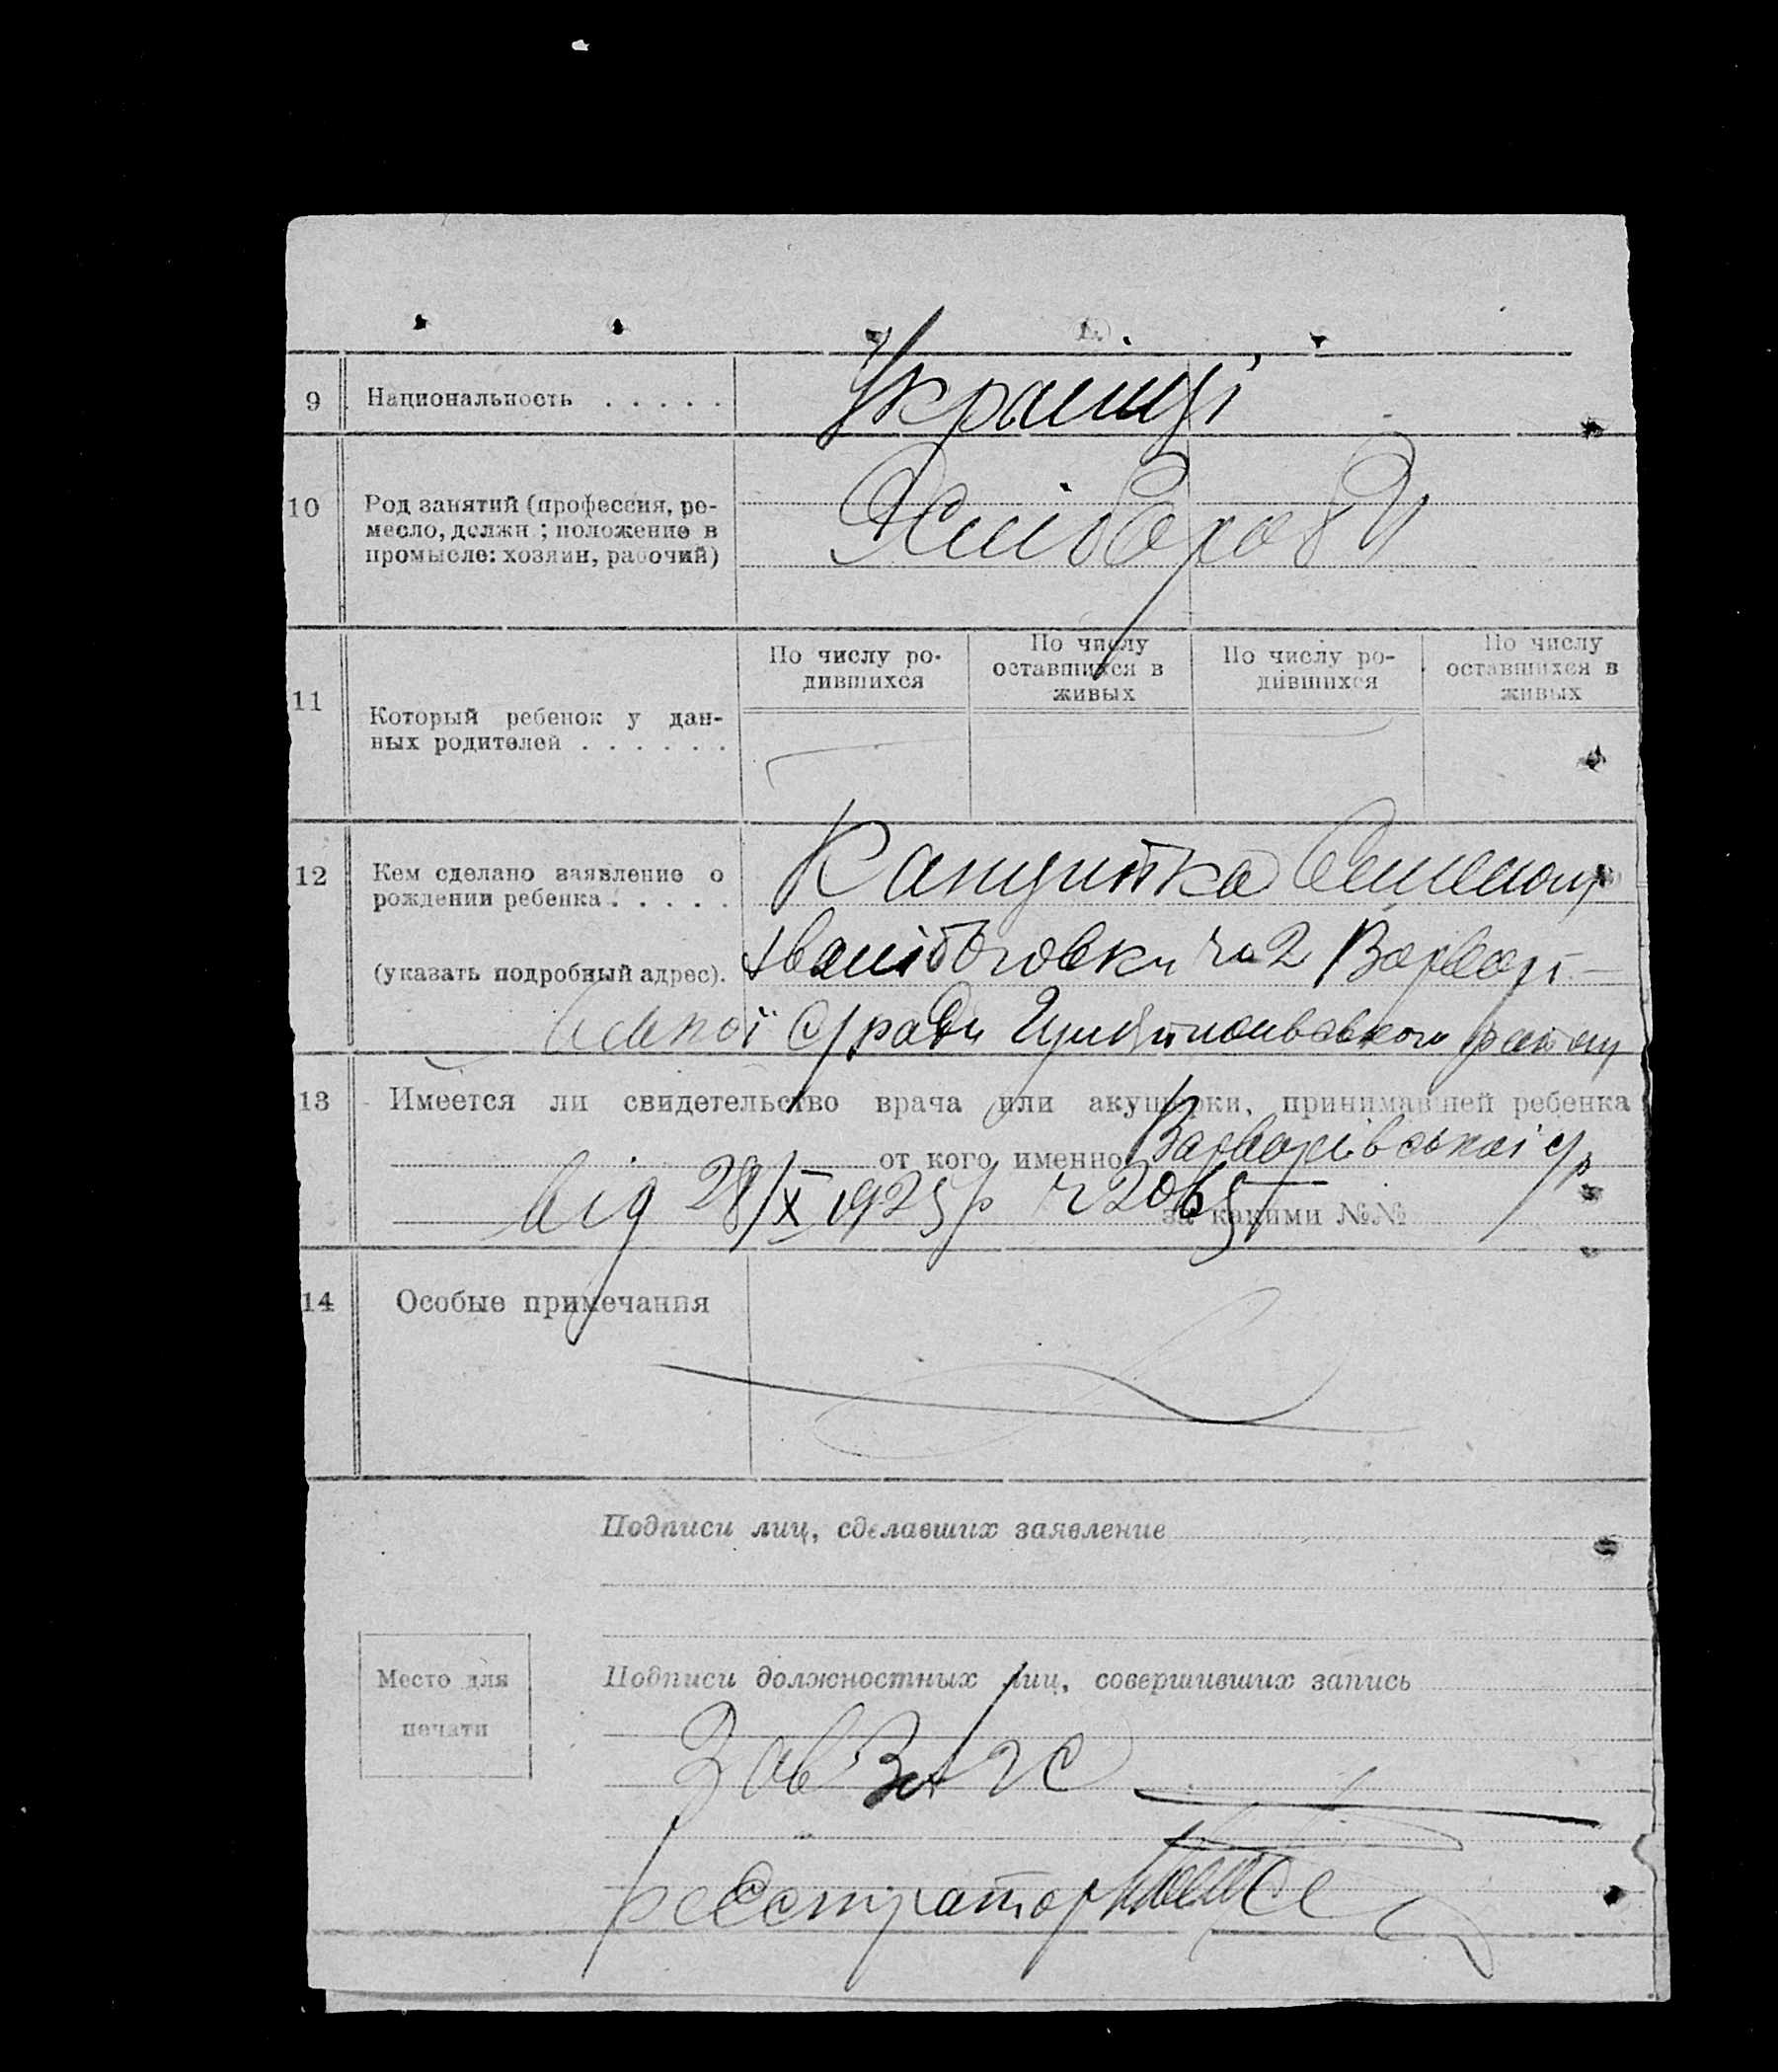 9 Национальность . . . . . Українці
10 Род занятий (профессия, ре-
месло, должн ; положение в
промысле: хозяин, рабочий)
Хлібороби
По числу ро-
дившихся
По числу
оставшихся в
живых
По числу ро-
дившихся
По числу
оставшихся в
живых
11 Который ребенок у дан-
ных родителей . . . . . .
12 Кем сделано заявление о
рождении ребенка . . . . .
(указать подробный адрес).
ч 2 Варварі-
вської с/ради району
13 Имеется ли свидетельство врача или акушерки, принимавшей ребенка
от кого именно Варварівської с/р
від 28/X 1925 р ч 2065
за какими №№
14 Особые примечания
Подписи лиц, сделавших заявление
Место для
печати
Подписи должностных лиц, совершивших запись
Зав ЗАГС
реєстратор